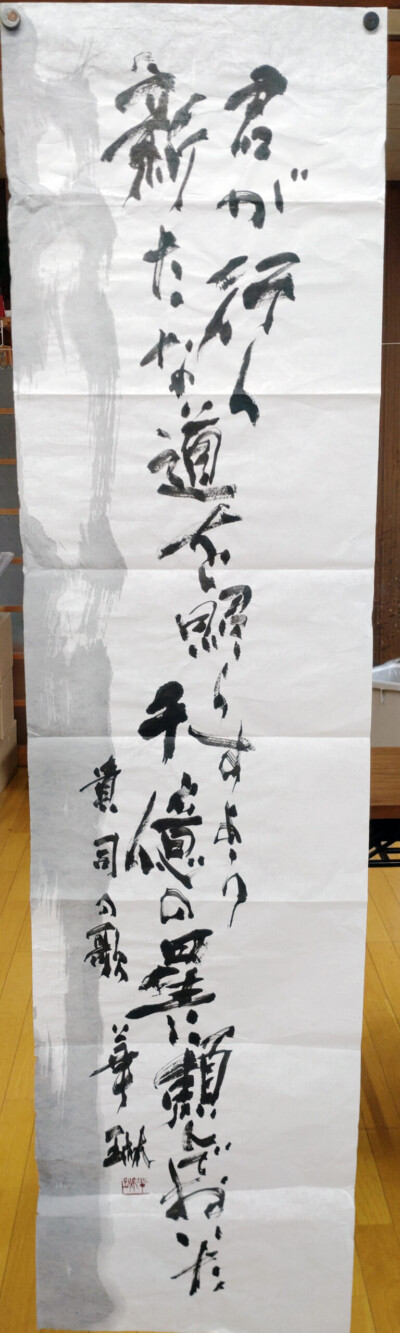 君が行く
新たな道を照らすよう
千億の星に頼んでおいた
貴司の歌
華琳